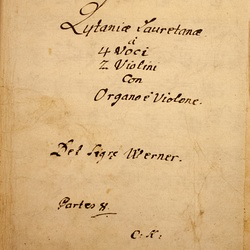 Lytaniæ Lauretanæ
à
4 Voci
2 Violini
Con
Organo è Violone.
Del Sigre Werner.
Partes 8.
C: K: